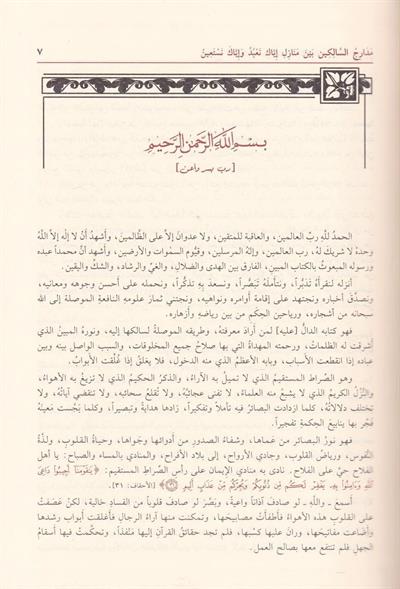 مَدَارِجُ السَّالِكِين بَيْنَ مَنَازِلِ إِيَّاكَ نَعْبُدُ وَإِيَّاكَ نَسْتَعِينُ ٧
بسم الله الرحمن الرحيم
[رب يسر وأعن]
الحمدُ للَّهِ ربِّ العالمين، والعاقبة للمتقين، ولا عدوانَ إلاَّ على الظَّالمينَ، وأشهدُ أنْ لا إلٰهَ إلاَّ اللَّهُ
وحدهُ لا شريكَ لهُ، رب العالمين، وإلٰهُ المرسلينَ، وقيُّوم السمٰوات والأرضين، وأشهدُ أنَّ محمداً عبده
ورسوله المبعوثُ بالكتاب المبين، الفارق بين الهدى والضلال، والغيِّ والرشاد، والشك واليقين.
أنزله لنقرأهُ تَدَبُّراً، ونتأملَهُ تَبَصُّراً، ونسعدَ بهِ تذكُّراً، ونحمله على أحسن وجوهه ومعانيه،
ونصدِّقَ أخباره ونجتهدَ على إقامة أوامره ونواهيه، ونجتني ثمارَ علومه النافعةِ الموصلة إلى الله
سبحانه من أشجاره، ورياحين الحِكم من بين رياضهِ وأزهاره.
فهو كتابه الدالُّ [عليه] لمن أرادَ معرفتهُ، وطريقه الموصلةُ لسالكها إليه، ونورهُ المبينُ الذي
أشرقت له الظلماتُ، ورحمته المهداةُ التي بها صلاحُ جميع المخلوقات، والسبب الواصل بينه وبين
عباده إذا انقطعت الأسباب، وبابه الأعظمُ الذي منه الدخول، فلا يغلقُ إذا غُلِّقت الأبوابُ.
وهو الصِّراط المستقيمُ الذي لا تميلُ به الآراءُ، والذكرُ الحكيمُ الذي لا تزيغُ به الأهواءُ،
والنُّزُلُ الكريمُ الذي لا يشبعُ منه العلماءُ، لا تفنى عجائبُهُ، ولا تُقلعُ سحائبه، ولا تنقضي آياتُهُ، ولا
تختلف دلالاتُهُ، كلما ازدادت البصائر فيه تأملاً وتفكيراً، زادها هدايةً وتبصيراً، وكلما بَجَست مَعينَهُ
فجَّر بها ينابيعَ الحكمةِ تفجيراً.
فهو نورُ البصائر من عَماها، وشفاءُ الصدورِ من أدوائها وجَواها، وحياةُ القلوبِ، ولذَّةُ
النُّفوسِ، ورياضُ القلوب، وحادي الأرواحِ، إلى بلادِ الأفراحِ، والمنادي بالمساء والصباحِ: يا أهل
الفلاحِ حيَّ على الفلاحِ. نادى به منادي الإيمان على رأس الصِّراط المستقيم: ﴿يَٰقَوْمَنَآ أَجِيبُوا۟ دَاعِىَ
ٱللَّهِ وَءَامِنُوا۟ بِهِۦ يَغْفِرْ لَكُم مِّن ذُنُوبِكُمْ وَيُجِرْكُم مِّنْ عَذَابٍ أَلِيمٍ ﴿٣١﴾﴾ [الأحقاف: ٣١].
أسمعَ ـ واللَّهِ ـ لو صادفَ آذاناً واعيةً، وبَصَّر لو صادفَ قلوباً من الفسادِ خاليةً، لكنْ عَصَفَتْ
على القلوبِ هذه الأهواءُ فأطفأتْ مصابيحَها، وتمكنت منها آراءُ الرجالِ فأغلقت أبوابَ رشدها
وأضاعت مفاتيحَها، ورانَ عليها كسْبها، فلم تجد حقائقُ القرآن إليها مَنْفَذاً، وتحكَّمتْ فيها أسقامُ
الجهلِ فلم تنتفع معها بصالحِ العمل.